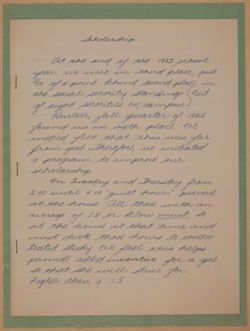 Scholarship
At the end of the 1955 school
year we were in third place, just
of a point behind second place, in
the social sorority standings (out
of eight sororities on campus)
However, fall quarter of 1955
found us in sixth place. We
indeed felt that this was far
from good. Therefore, we initiated
a program to improve our
scholarship.
On Tuesday and Thursday from
2:00 until 4:00 "quiet hours" prevail
at the house. All those with an
average of 1.5 or below must be
at the house at that time and
must devote those hours to concen-
trated study. We feel this helps
provide added incentive for a girl
so that she will strive for
higher than a 1.5